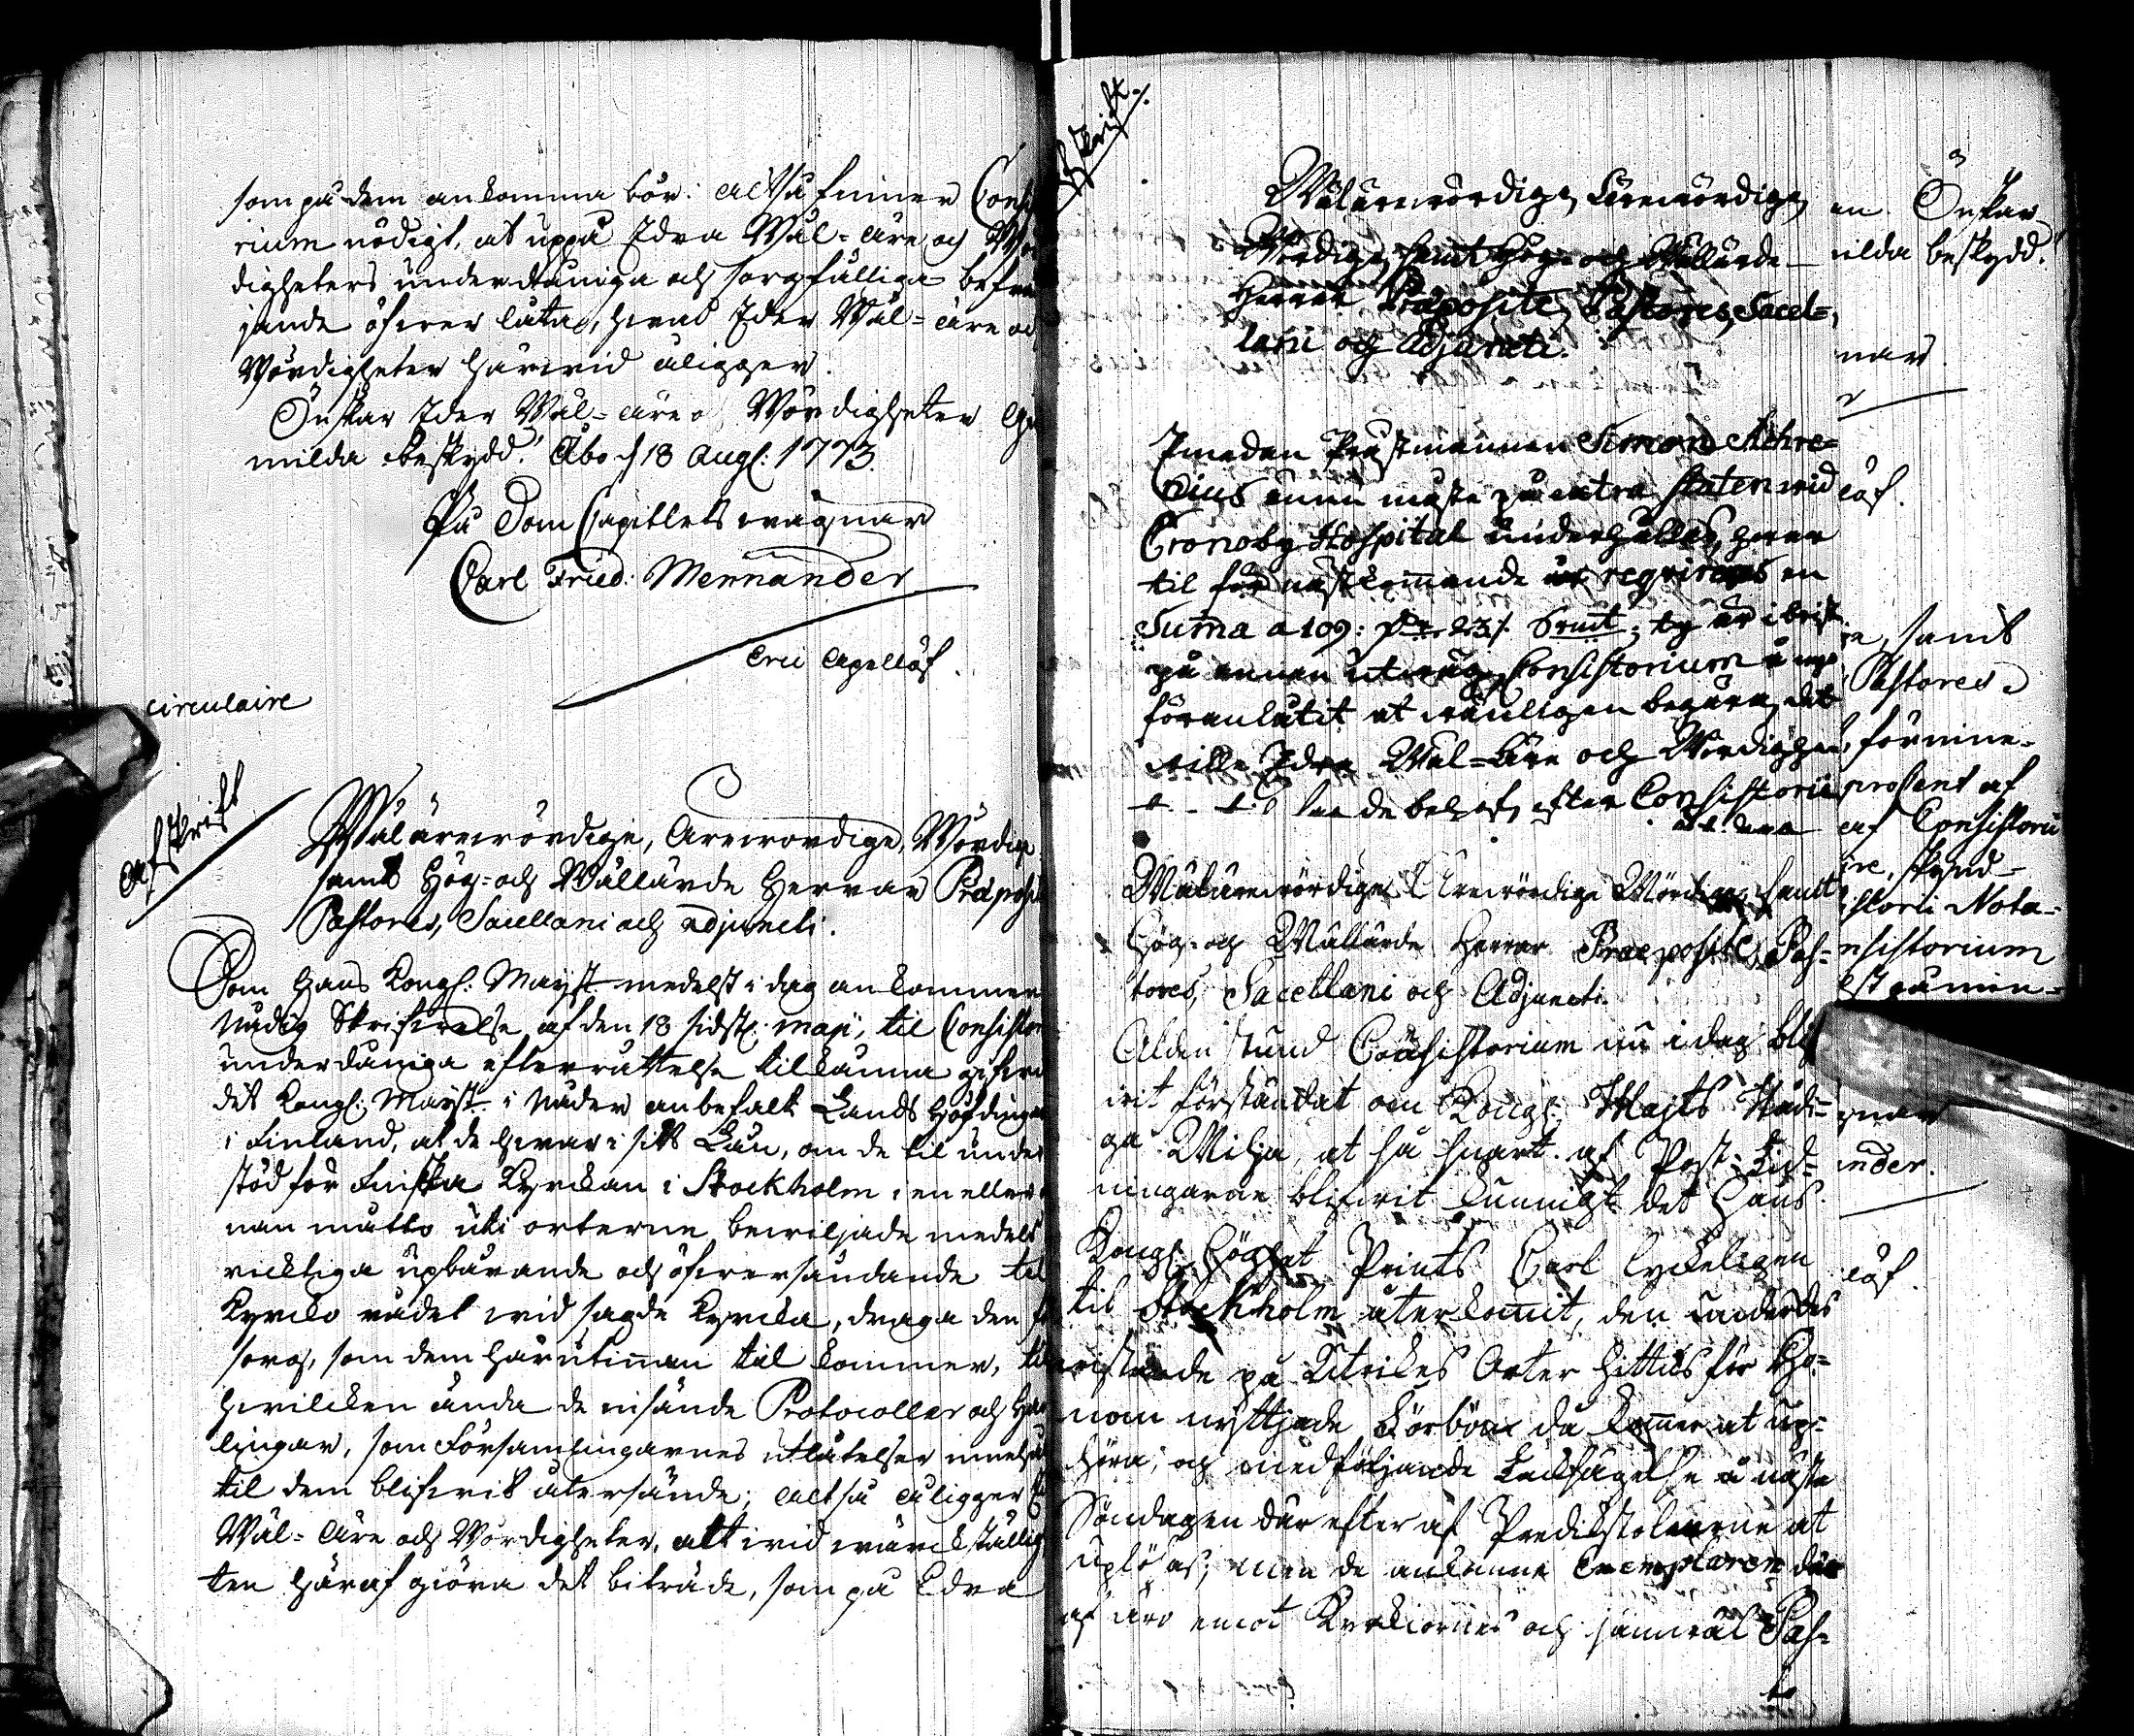 som på dem ankomma bör: altså finner Consi
rium nödigt, at uppå Edra Wäl-äre och Wör
digheters underdåniga och sorgfälliga befrä
jande öfwerlåta, hwad Eder Wäl-äre och
Wördigheter härwid åligger.
Önskar Eder Wäl-äre o Wördigheter Gu
milda beskydd. Åbo d 18 Augl: 1773.
På Dom Capitlets wägnar
Carl Fried: Mennander
Eric Agelläf.
circulaire
Afskrift
Wälärewördige, Ärewördige, Wördige
samt Hög- och Wällärde Herrar Præposit
Pastores, Sacellani och adjuncti.
Som Hans Kongl: Mayst medelst i dag ankommen
Nådig Skrifwelse af den 18 sidstl: maji, til Consistor
underdåniga efterrättelse tilkänna gifwit
det Kongl: Mayst. i Nåder anbefalt Landshöfdingar
i Finland, at de hwar i sitt Län, om de til under
stöd för Finska Kyrckan i Stockholm i en eller
nan måtto uti orterne bewiljade medels
ricktiga upbärande och öfwersändande til
Kyrcko rådet wid sagde Kyrcka, draga den
sorg, som dem härutinnan til kommer, til
hwilcken ända de insände Protocoller och Han
lingar, som Församlingarnes utlåtelser innehål
til dem blifwit återsände; altså åligger
Wäl-äre och Wördigheter, att wid wärckställig
ten häraf giöra det biträde, som på Edra
Afskrift.
Wälärewördige, Ärewördige,
Wördige, samt Hög- och Wällärde
Herrar Præposite, Pastores, Sacel-
lani och Adjuncti.
Emedan Prästmannen Simon Achre-
nius ännu måste på extra staten wid
Cronoby Hospital underhållas, hwar
til för nästkommande år requireras en
Suma a 109: 23/. Smt; ty är i brist
på annan utwäg Consistorium
föranlåtit at wänligen begära, det
wille Edra Wäl-Äre och Wördighe
de behof, efter Consistorii
Wälärewördige Ärewördige Wördige samt
Hög- och Wällärde Herrar Præposite, Pas-
tores, Sacellani och Adjuncti.
Alden stund Consistorium nu i dag blif
wit förständigat om Kongl: Majts Nådi-
ga Wilja, at så snart af Post-Tid-
ningarne blifwit kunnigt det Hans
Kongl: Höghet Prints Carl lyckeligen
til Stockholm återkomit, den under des
wistande på Utrikes Orter hittils för Ho-
nom nyttjade Förbön då kommer at up-
höra; och medföljande Tacksägelse å nästa
Söndagen där efter af Predikstolarne at
uplösas; men de ankomne Exemplaren där
af äro emot Kyrkiornes och jämwäl Pas-
en Önskar
milda beskydd.
nar
läf.
re, samt
Pastores
förmine-
prosent af
af Consistorii
re, skynd-
istorii Nota-
nsistorium
gnar
nder.
läf.